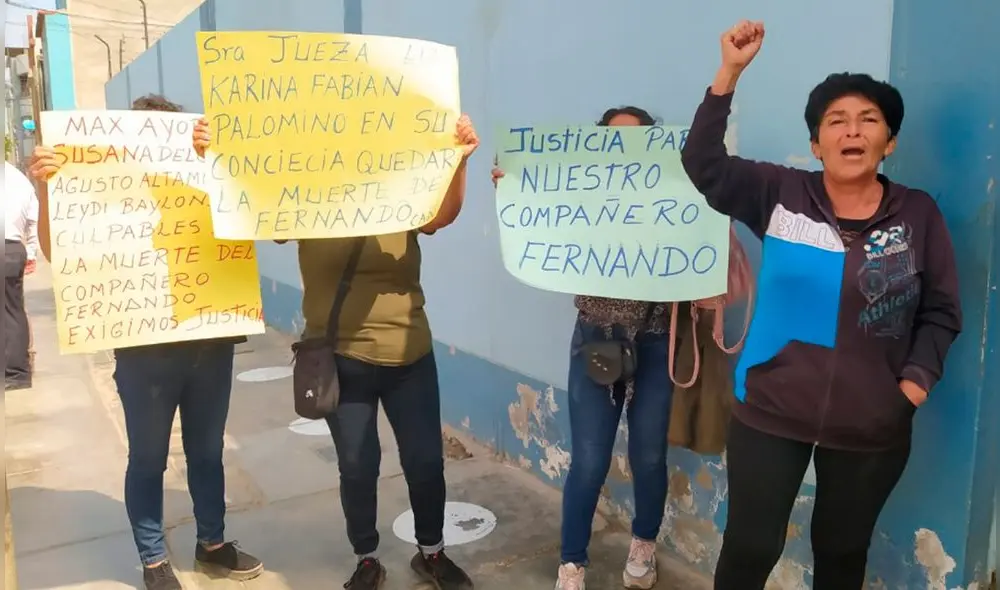 MAX AYO
SUSANA DEL
AGUSTO ALTAMI
LEYDI BAYLON
CULPABLES
LA MUERTE DEL
COMPAÑERO
FERNANDO
EXIGIMOS JUSTICIA
Sra JUEZA
KARINA FABIAN
PALOMINO EN SU
CONCIECIA QUEDAR
LA MUERTE DE
FERNANDO
JUSTICIA PAR
NUESTRO
COMPAÑERO
FERNANDO
BILL
Athletic